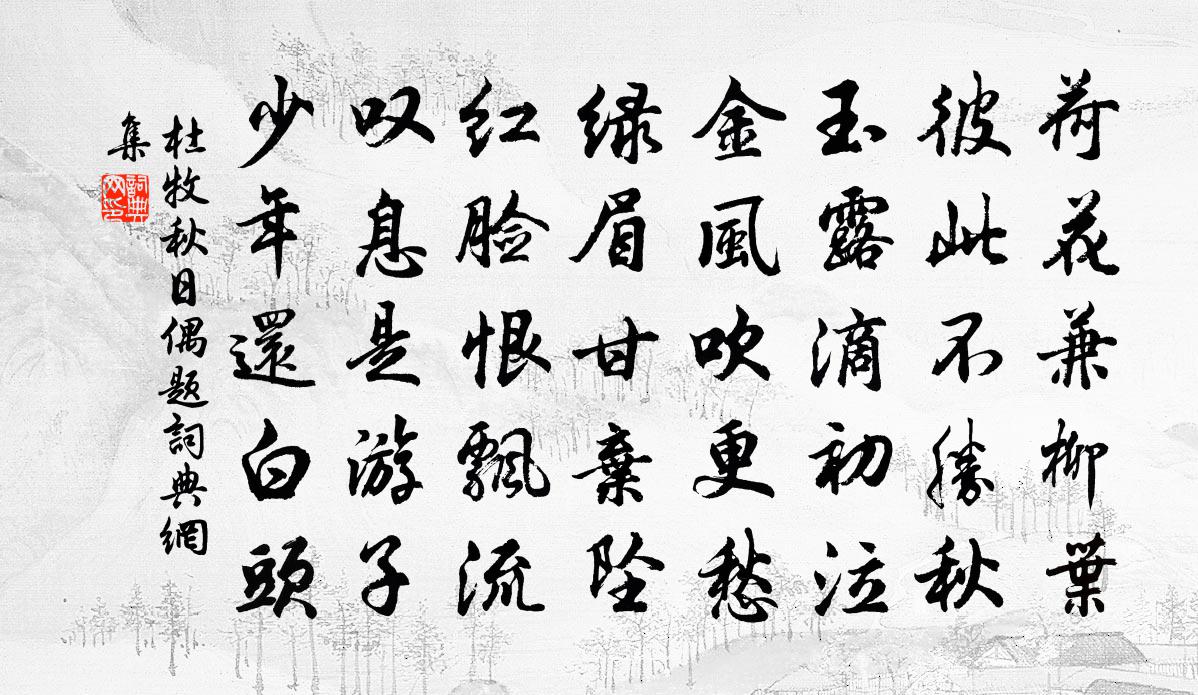 荷花兼柳葉
彼此不勝秋
玉露滴初泣
金風吹更愁
绿眉甘棄坠
红脸恨飄流
叹息是游子
少年還白頭
杜牧秋日偶题詞典網
集
詞典
网印